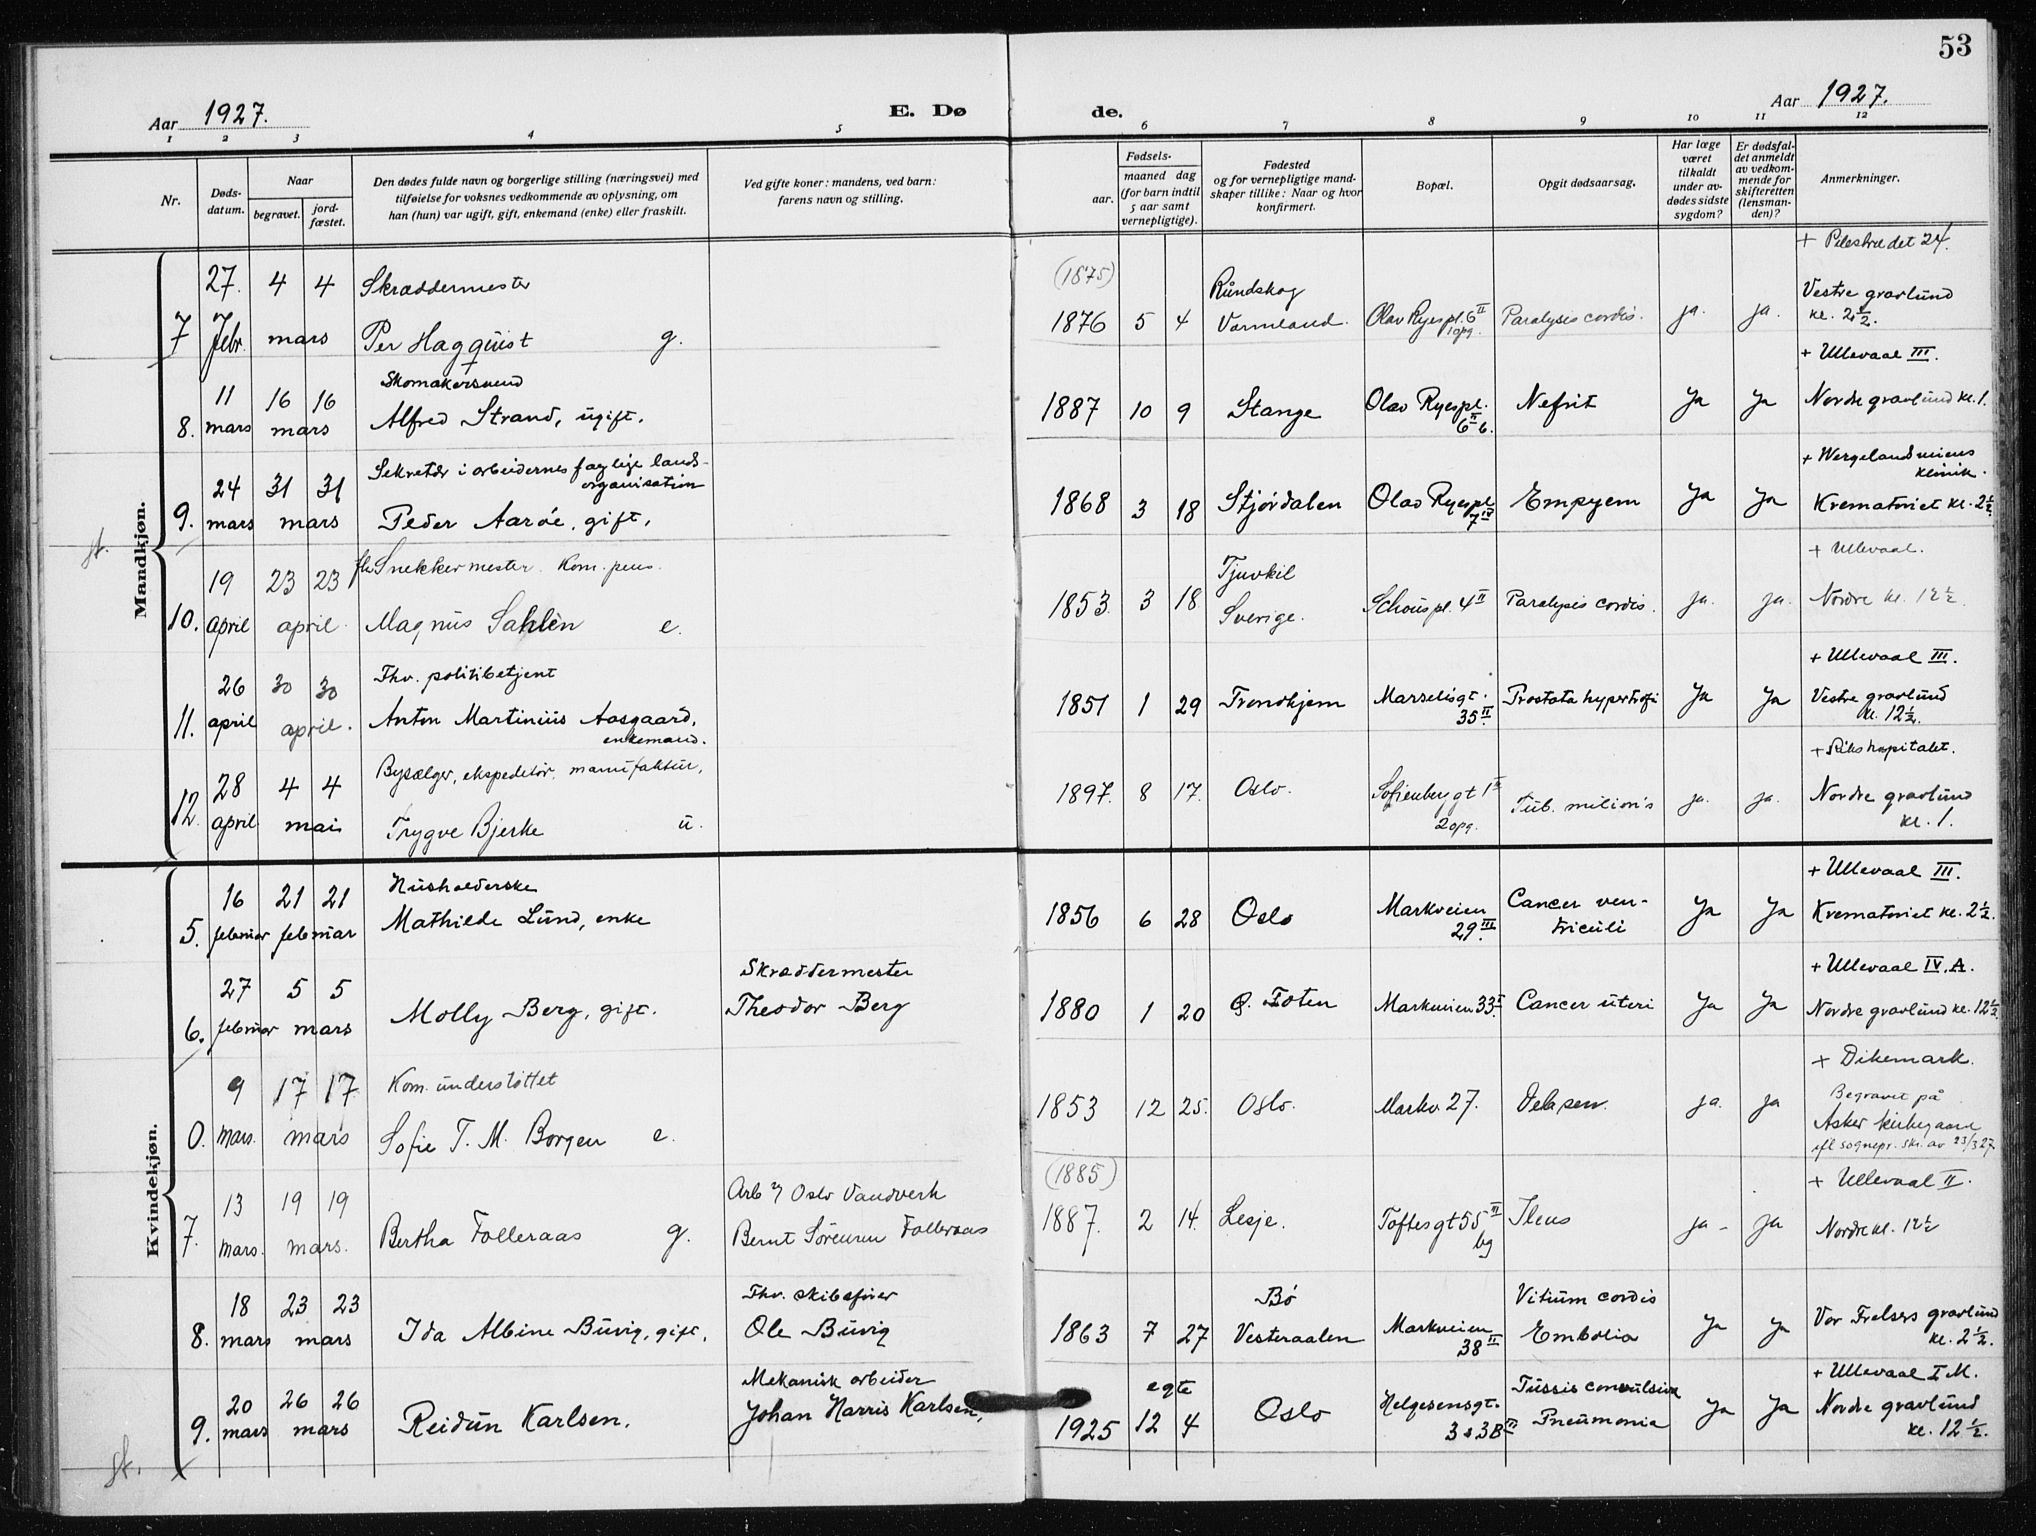 53
Aar 1927.
E. Dø de.
Aar 1927.
1 2 3 4 5 6 7 8 9 10 11 12
Nr.
Døds-
datum.
Naar
begravet.
jord-
fæstet.
Den dødes fulde navn og borgerlige stilling (næringsvei) med
tilføielse for voksnes vedkommende av oplysning, om
han (hun) var ugift, gift, enkemand (enke) eller fraskilt.
Ved gifte koner: mandens, ved barn:
farens navn og stilling.
Fødsels-
aar. maaned dag
(for barn indtil
5 aar samt
vernepligtige).
Fødested
og for vernepligtige mand-
skaper tillike: Naar og hvor
konfirmert.
Bopæl.
Opgit dødsaarsag.
Har læge
været
tilkaldt
under av-
dødes sidste
sygdom?
Er dødsfal-
det anmeldt
av vedkom-
mende for
skifteretten
(lensman-
den)?
Anmerkninger.
Mandkjøn.
+ Pilestrædet 24.
27. 4 4 Skræddermester (1875) Rundskog Vestre gravlund
7 Febr. mars Per Hagquist g. 1876 5 4 Varmland. Olav Ryespl. 6 II 1opg. Paralysis cordis. ja. ja. kl. 2 1/2.
Skomakersvend + Ullevaal III.
11 16 16
8. mars mars Alfred Strand, ugift. 1887 10 9 Stange Olav Ryespl. 6 II b. Nefrit Ja Ja Nordre gravlund kl. 1.
Sekretær i arbeidernes faglige lands-
organisation
+ Wergelandsveiens
klinik.
24 31 31
9. mars mars Peder Aarøe, gift. 1868 3 18 Stjørdalen Olav Ryespl. 7 IV Empyem Ja Ja Krematoriet kl. 2 1/2.
st.
fh. Snekkermester. Kom. pens. + Ullevaal.
19 23 23 Tjuvkil
10. april april. Magnus Sahlèn e. 1853. 3 18 Sverige. Schouspl. 4 II Paralysis cordis. ja. ja. Nordre kl. 12 1/2
Fhv. politibetjent + Ullevaal III.
26 30 30
11. april april. Anton Martinius Aasgaard, 1851 1 29 Trondhjem Marselisgt. 35 II Prostata hypertrofi Ja Ja Vestre gravlund
enkemand. kl. 12 1/2.
Bysælger, ekspeditør, manufaktur, + Rikshospitalet.
28 4 4
12. april mai Trygve Bjerke u. 1897. 8 17. Oslo. Sofienberggt 1 II 2 opg. Tub. miliaris ja. ja. Nordre gravlund
kl. 1.
Kvindekjøn.
Husholderske + Ullevaal III.
16 21 21
5. februar februar Mathilde Lund, enke 1856 6 28 Oslo Markveien 29 III. Cancer ven-
triculi Ja Ja Krematoriet kl. 2 1/2.
Skræddermester + Ullevaal IV.A.
27 5 5
6. februar mars Molly Berg, gift. Theodor Berg 1880 1 20 Ø. Toten Markveien 33 I. Cancer uteri Ja Ja Nordre gravlund kl. 12 1/2.
+ Dikemark.
9 17 17 Kom. understøttet Begravet på
0. mars. mars Sofie T. M. Borgen e. 1853 12 25. Oslo. Markv. 27. ja. ja Asker kirkegaard
efl sognepr. skr. av 23/3 27.
(1885)
Arb v Oslo Vandverk + Ullevaal II.
13 19 19
7. mars. mars. Bertha Folleraas g. Bernt Sørensen Folleraas 1887. 2 14. Lesje. Toftesgt 55 II bg Ileus ja - ja Nordre kl. 12 1/2
Fhv. skibsfører Bø Vitium cordis
18 23 23
8. mars mars Ida Albine Buvig, gift, Ole Buvig 1863 7 27 Vesteraalen Markveien 38 II Embolia Ja Ja Vor Frelsers gravlund
kl. 2 1/2.
Mekanisk arbeider egte Tussis convulsiva + Ullevaal I M.
20 26 26
9. mars mars Reidun Karlsen. Johan Harris Karlsen, 1925 12 4 Oslo Helgesensgt. 3 38 III Pneumonia Ja Ja Nordre gravlund
kl. 12 1/2.
st.